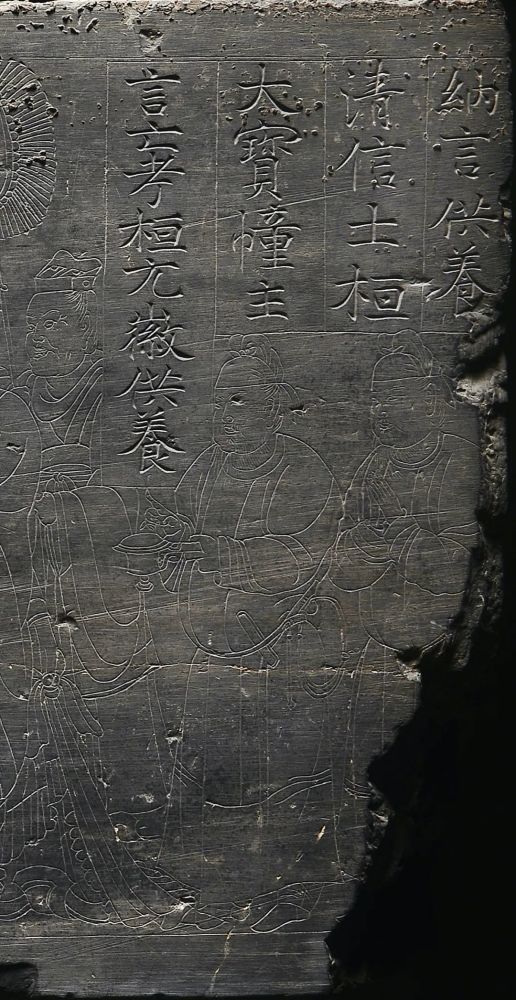 言亡考桓元徽供養
大寶幢主
清信士桓
納言供養